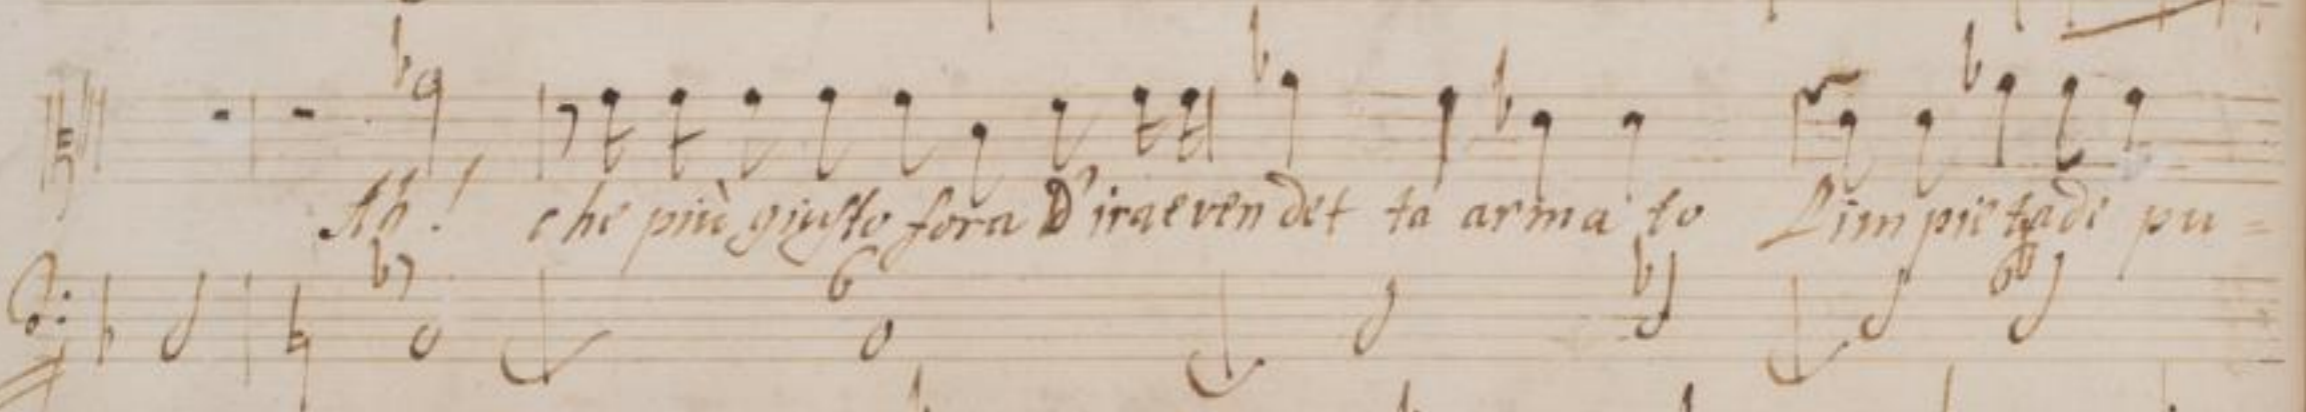 Ah! che più giusto fora D'ira e vendet ta arma to L'impietade pu=
b7 6 b 6b